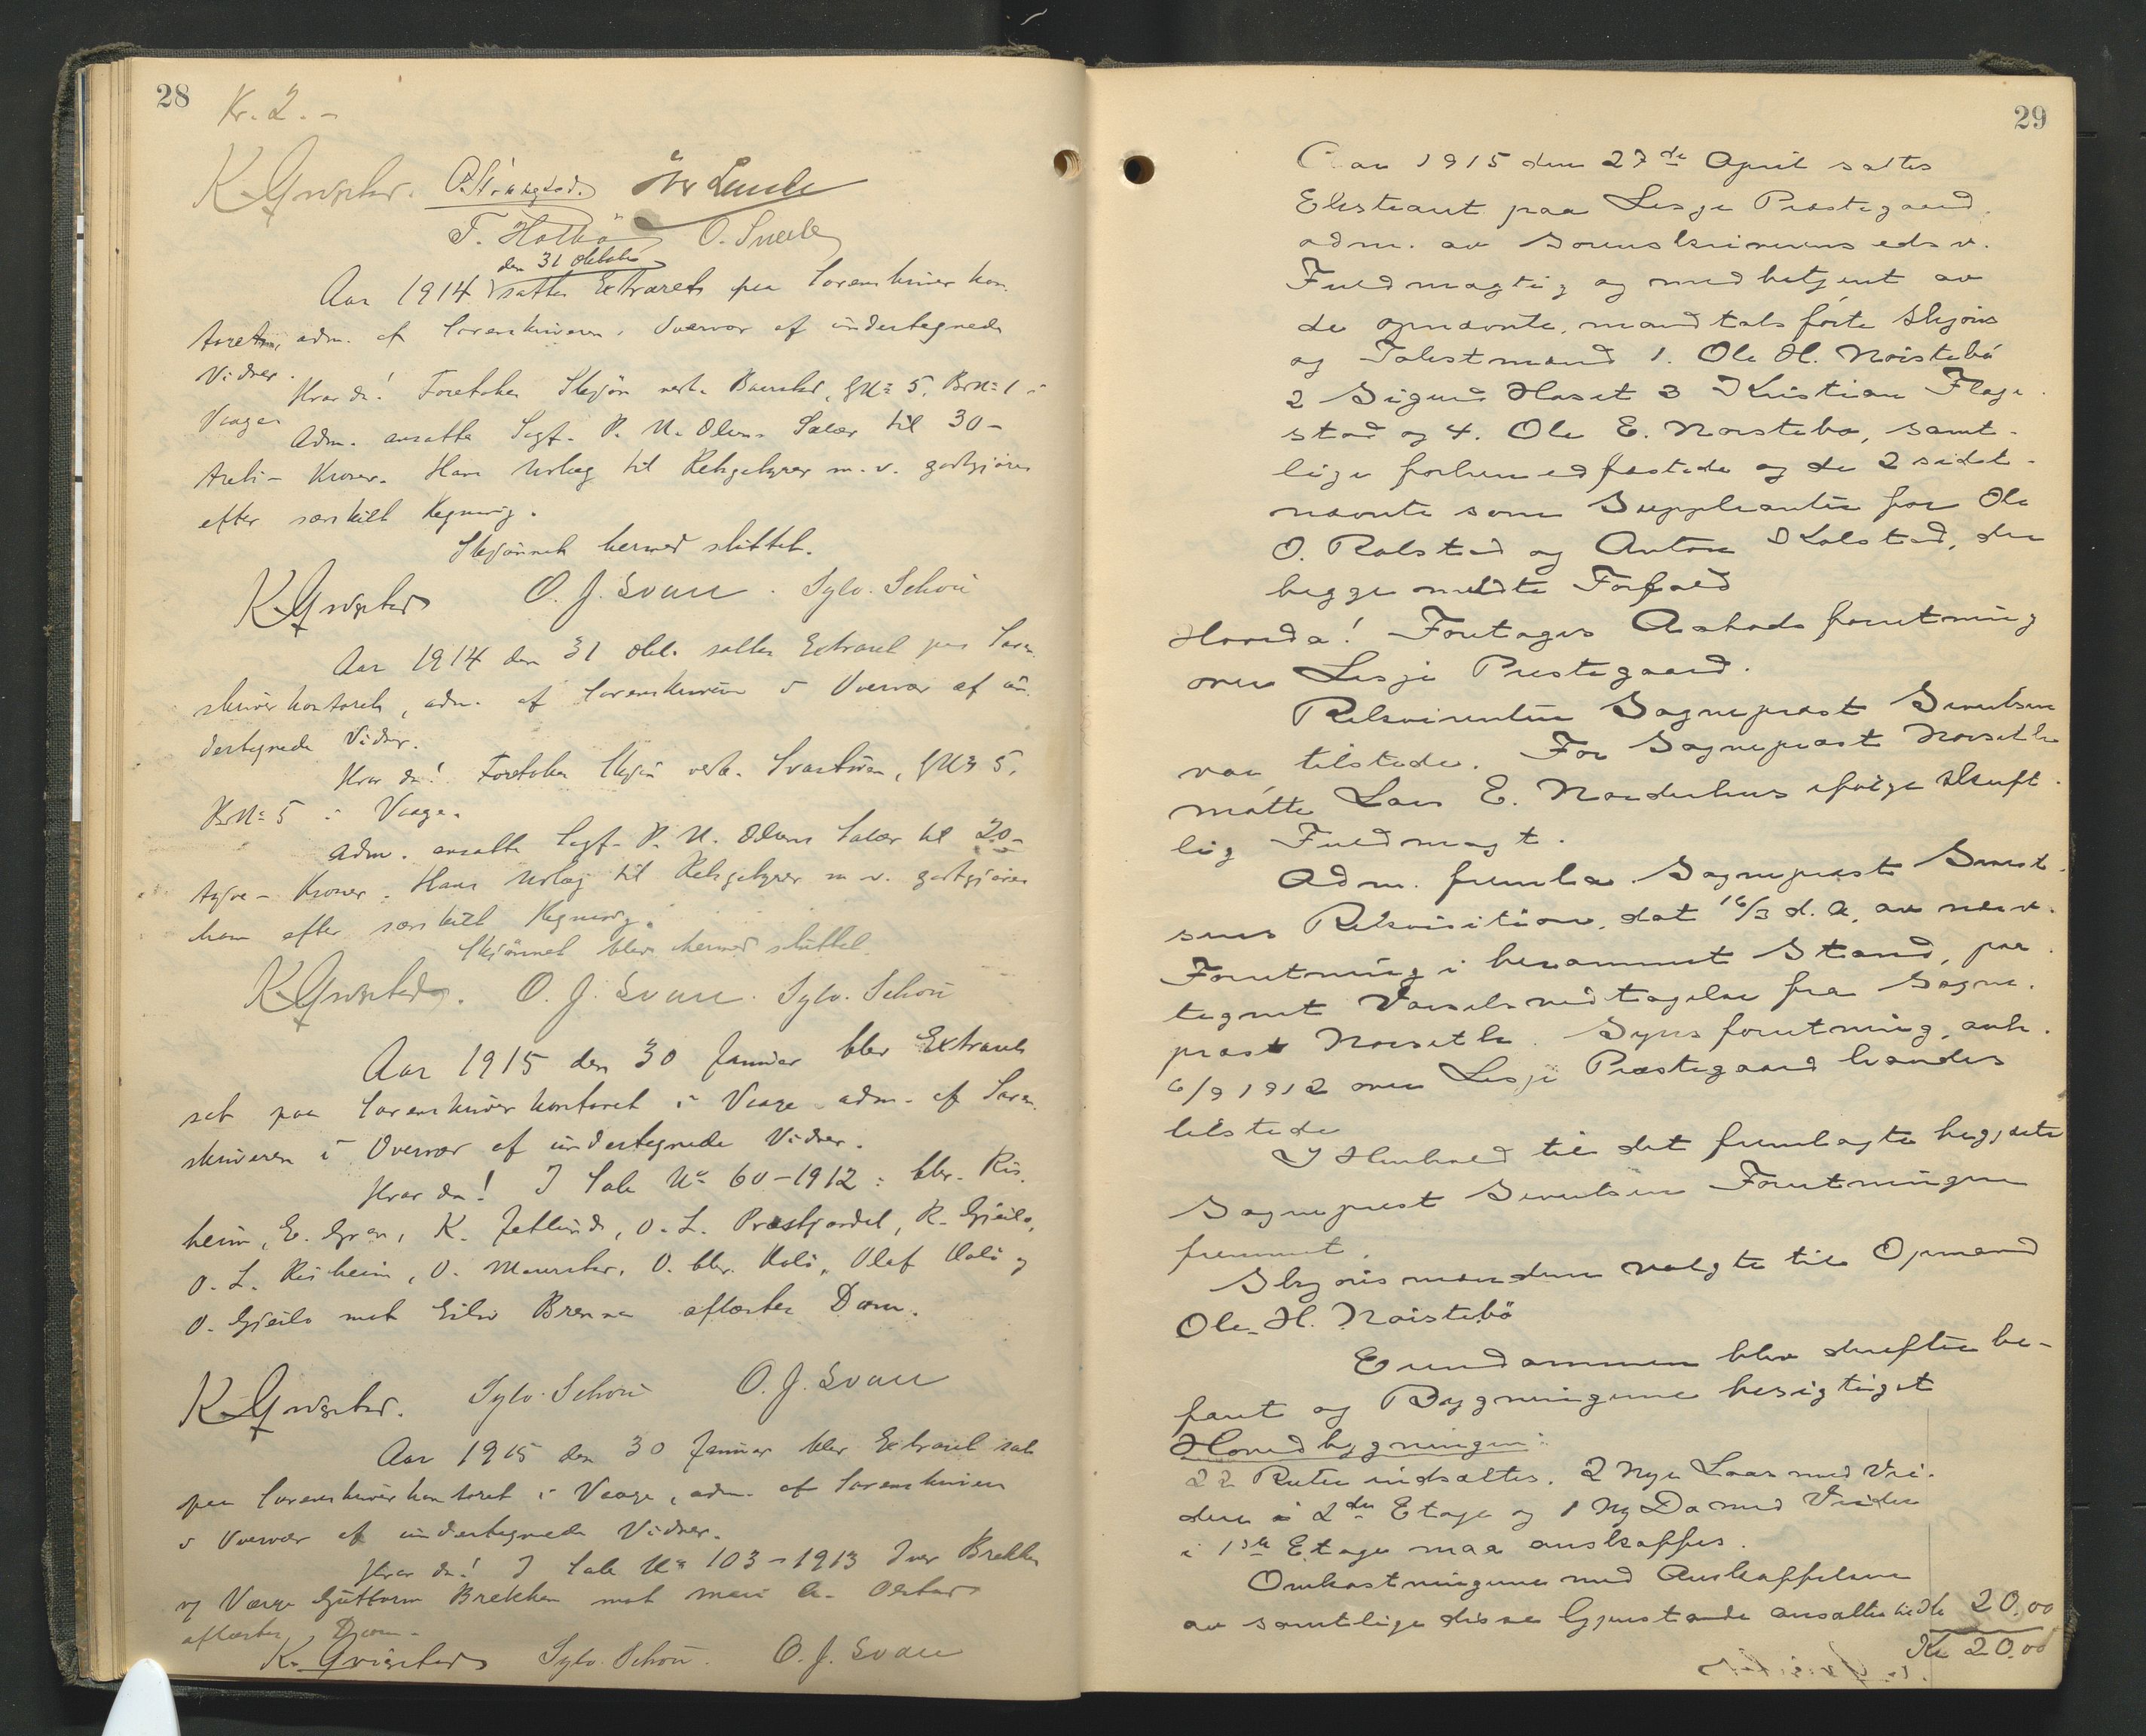 28
Kr. 2.-
K Gvigstad. Iver Lunde
T. Hølbø O. Snerle
den 31 Oktober
Aar 1914 sattes Extraret paa Sorenskriverkon
toret, adm. af Sorenskriveren i Overvær af undertegnede
Vidner.
Hvor da! Foretokes Skjøn vedk. , GNo 5, BrNo 1 i
Vaage.
Adm. ansatte Sagf. P. N. Olsens Salær til 30 -
treti - Kroner. Hans Utlæg til Retsgebyrer m. v. godtgjøres
efter særskilt Regning.
Skjønnet hermed sluttet.
K Gvigstad O. J. Svare. Sylv. Schou
Aar 1914 den 31 Okt. sattes Extraret paa Soren
skriverkontoret, adm. af Sorenskriveren i Overvær af un
dertegnede Vidner.
Hvor da! Foretokes Skjøn vedk. , GNo 5,
BrNo 5 i Vaage.
Adm. ansatte Sagf. P. N. Olsens Salær til 20 -
tyve - Kroner. Hans Utlæg til Retsgebyrer m. v. godtgjøres
ham efter særskilt Regning.
Skjønnet blev hermed sluttet.
K Gvigstad. O. J. Svare. Sylv. Schou
Aar 1915 den 30 Januar blev Extraret
sat paa Sorenskriverkontoret i Vaage adm. af Soren
skriveren i Overvær af undertegnede Vidner.
Hvor da! I Sak No 60 - 1912: Ris
heim, E. Gran, K. , O. L. , R. Gjeilo,
O. L. Risheim, O. , O. , Olaf og
O. Gjeilo mot Eilev Brenna aflæstes Dom.
K Gvigstad. Sylv. Schou O. J. Svare
Aar 1915 den 30 Januar blev Extraret sat
paa Sorenskriverkontoret i Vaage, adm. af Sorenskriveren
i Overvær af undertegnede Vidner.
Hvor da! I Sak No 103 - 1913 Iver Brekken
og Værge Guttorm Brekken mot
aflæstes Dom.
K. Gvigstad Sylv. Schou. O. J. Svare
29
Aar 1915 den 27de April sattes
Ekstraret paa Lesje Præstegaard,
adm. av Sorenskriverens edsv.
Fuldmægtig og medbetjent av
de opnævnte, mandtalsførte Skjøns
og Takstmænd 1. Ole H. Noistebø
2 Sigurd Haset 3 Kristian Flage
stad og 4. Ole E. Norstebø, samt
lige forhen edfæstede og de 2 sidst
nævnte som Suppleanter for Ole
O. Rolstad og Anton Skolstad, der
begge meldte Forfald
Hvorda! Foretages Aabodsforretning
over Lesje Prestegaard.
Rekvirenten Sogneprest Sivertsen
var tilstede. For Sogneprest
møtte Lars E. Norderhus ifølge Skrift
lig Fuldmagt.
Adm. fremla Sogneprest Sivert
sens Rekvisition, dat 16/3 d. A. av nærv.
Forretning i berammet Stand, paa
tegnet Varselsvedtagelse fra Sogne
prest . Synsforretning, avh.
6/9 1912 over Lesje Præstegaard havdes
tilstede
I Henhold til det fremlagte begjærte
Sogneprest Sivertsen Forretningen
fremmet.
Skjønsmændene valgte til Opmand
Ole H. Noistebø
Eiendommen blev derefter be-
faret og Bygningerne besigtiget
Hovedbygningen:
22 Ruter indsættes. 2 Nye Laas med Vri
dere i 2den Etage og 1 Ny Do med Vrider
i 1ste Etage maa anskaffes.
Omkostningerne med Anskaffelsen
av samtlige disse Gjenstande ansættes til 20.00
Kr 20.00